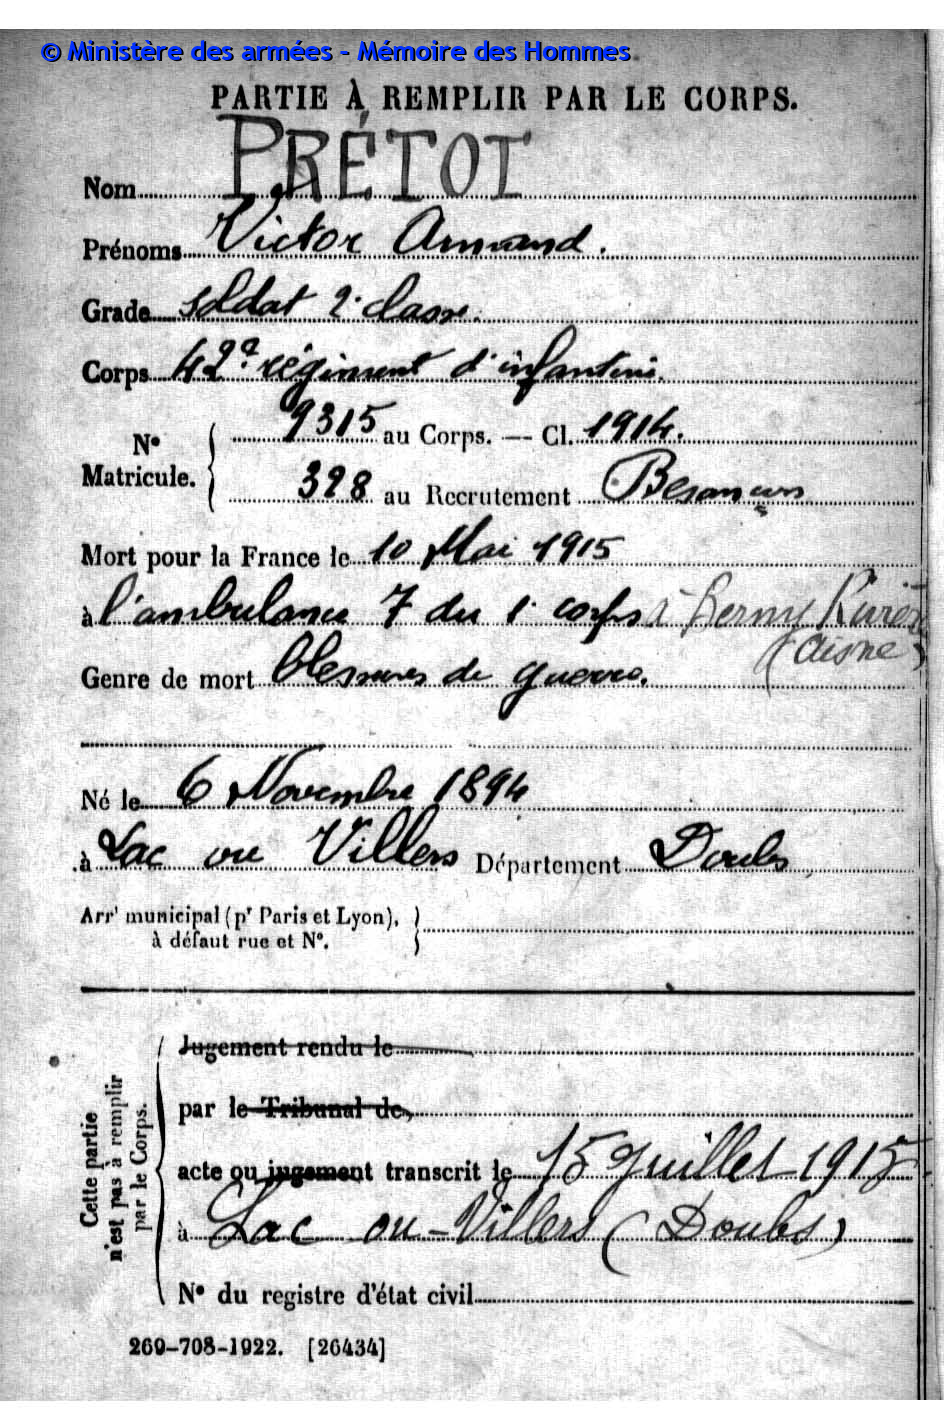 © Ministère des armées - Mémoire des Hommes
PARTIE À REMPLIR PAR LE CORPS.
Nom PRÉTOT
Prénoms Victor Armand.
Grade soldat 2e classe.
Corps 42e régiment d'infanterie.
N° Matricule. 9315 au Corps. — Cl. 1914.
328 au Recrutement Besançon
Mort pour la France le 10 Mai 1915
à l'ambulance 7 du 1er corps à Berny Rivière
(Aisne)
Genre de mort blessures de guerre.
Né le 6 Novembre 1894
à Lac ou Villers Département Doubs
Arrt municipal (pr Paris et Lyon),
à défaut rue et N°.
Cette partie
n'est pas à remplir
par le Corps.
Jugement rendu le
par le Tribunal de
acte ou jugement transcrit le 15 Juillet 1915
à Lac ou-Villers (Doubs)
N° du registre d'état civil
269-708-1922. [26434]